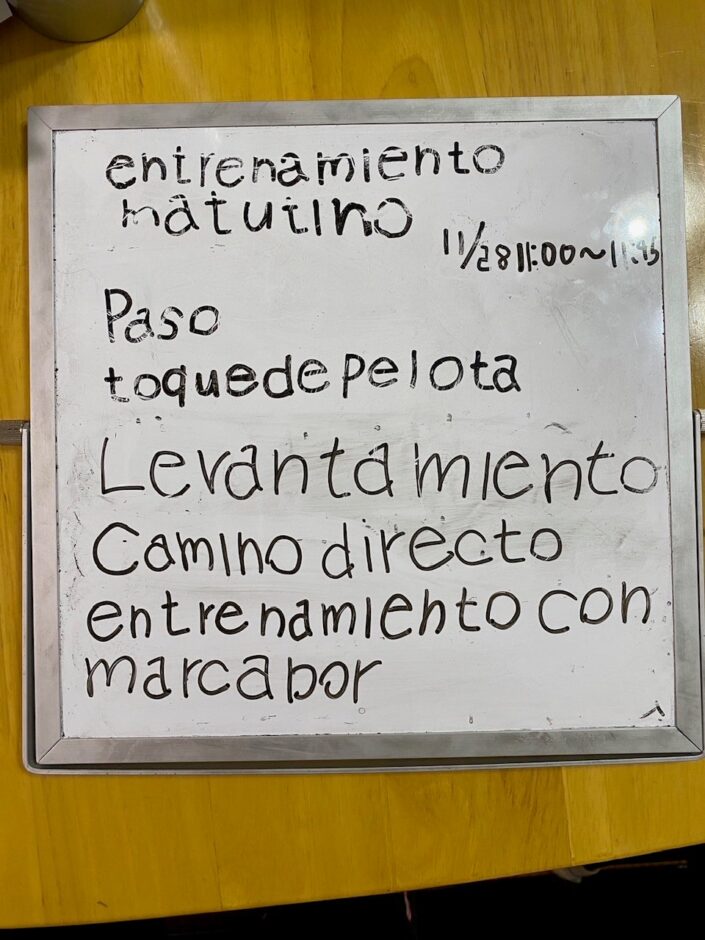 entrenamiento
matutino
11/28 11:00~11:45
Paso
toquedepelota
Levantamiento
Camino directo
entrenamiento con
marcador